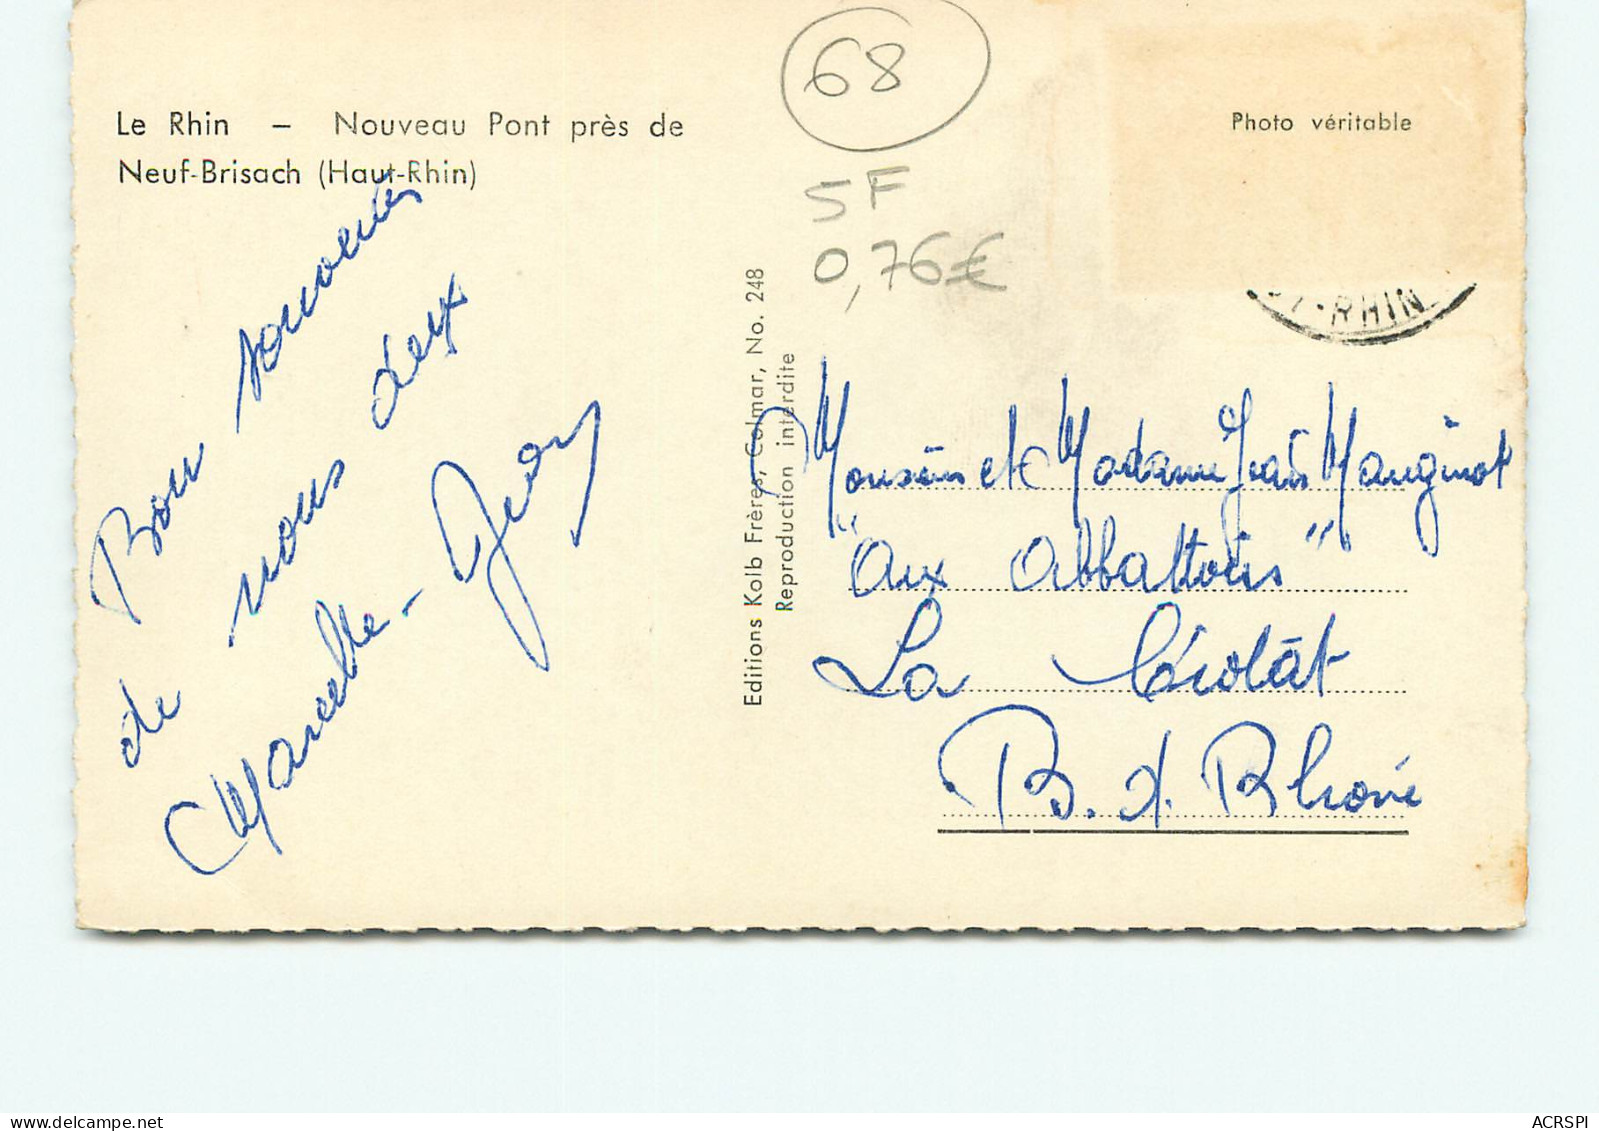 68
5F
0,76€
Le Rhin – Nouveau Pont près de
Neuf-Brisach (Haut-Rhin)
Photo véritable
T-RHIN
Bon souvenirs
de nous deux
Marcelle -
Editions Kolb Frères, Colmar, No. 248
Reproduction interdite
Monsieur et Madame Jean Mauginot
"Aux Abbattoirs"
La Ciotât
B. d. Rhone
ACRSPI